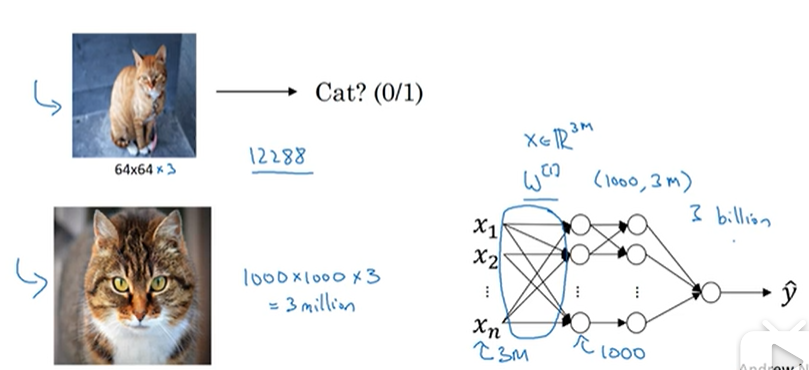 Cat? (0/1)
64x64 x 3
12288
1000 x 1000 x 3
= 3 million
x ∈ ℝ^3M
W^[1] (1000, 3M)
3 billion
x₁
x₂
⋮
xₙ
3M
1000
ŷ